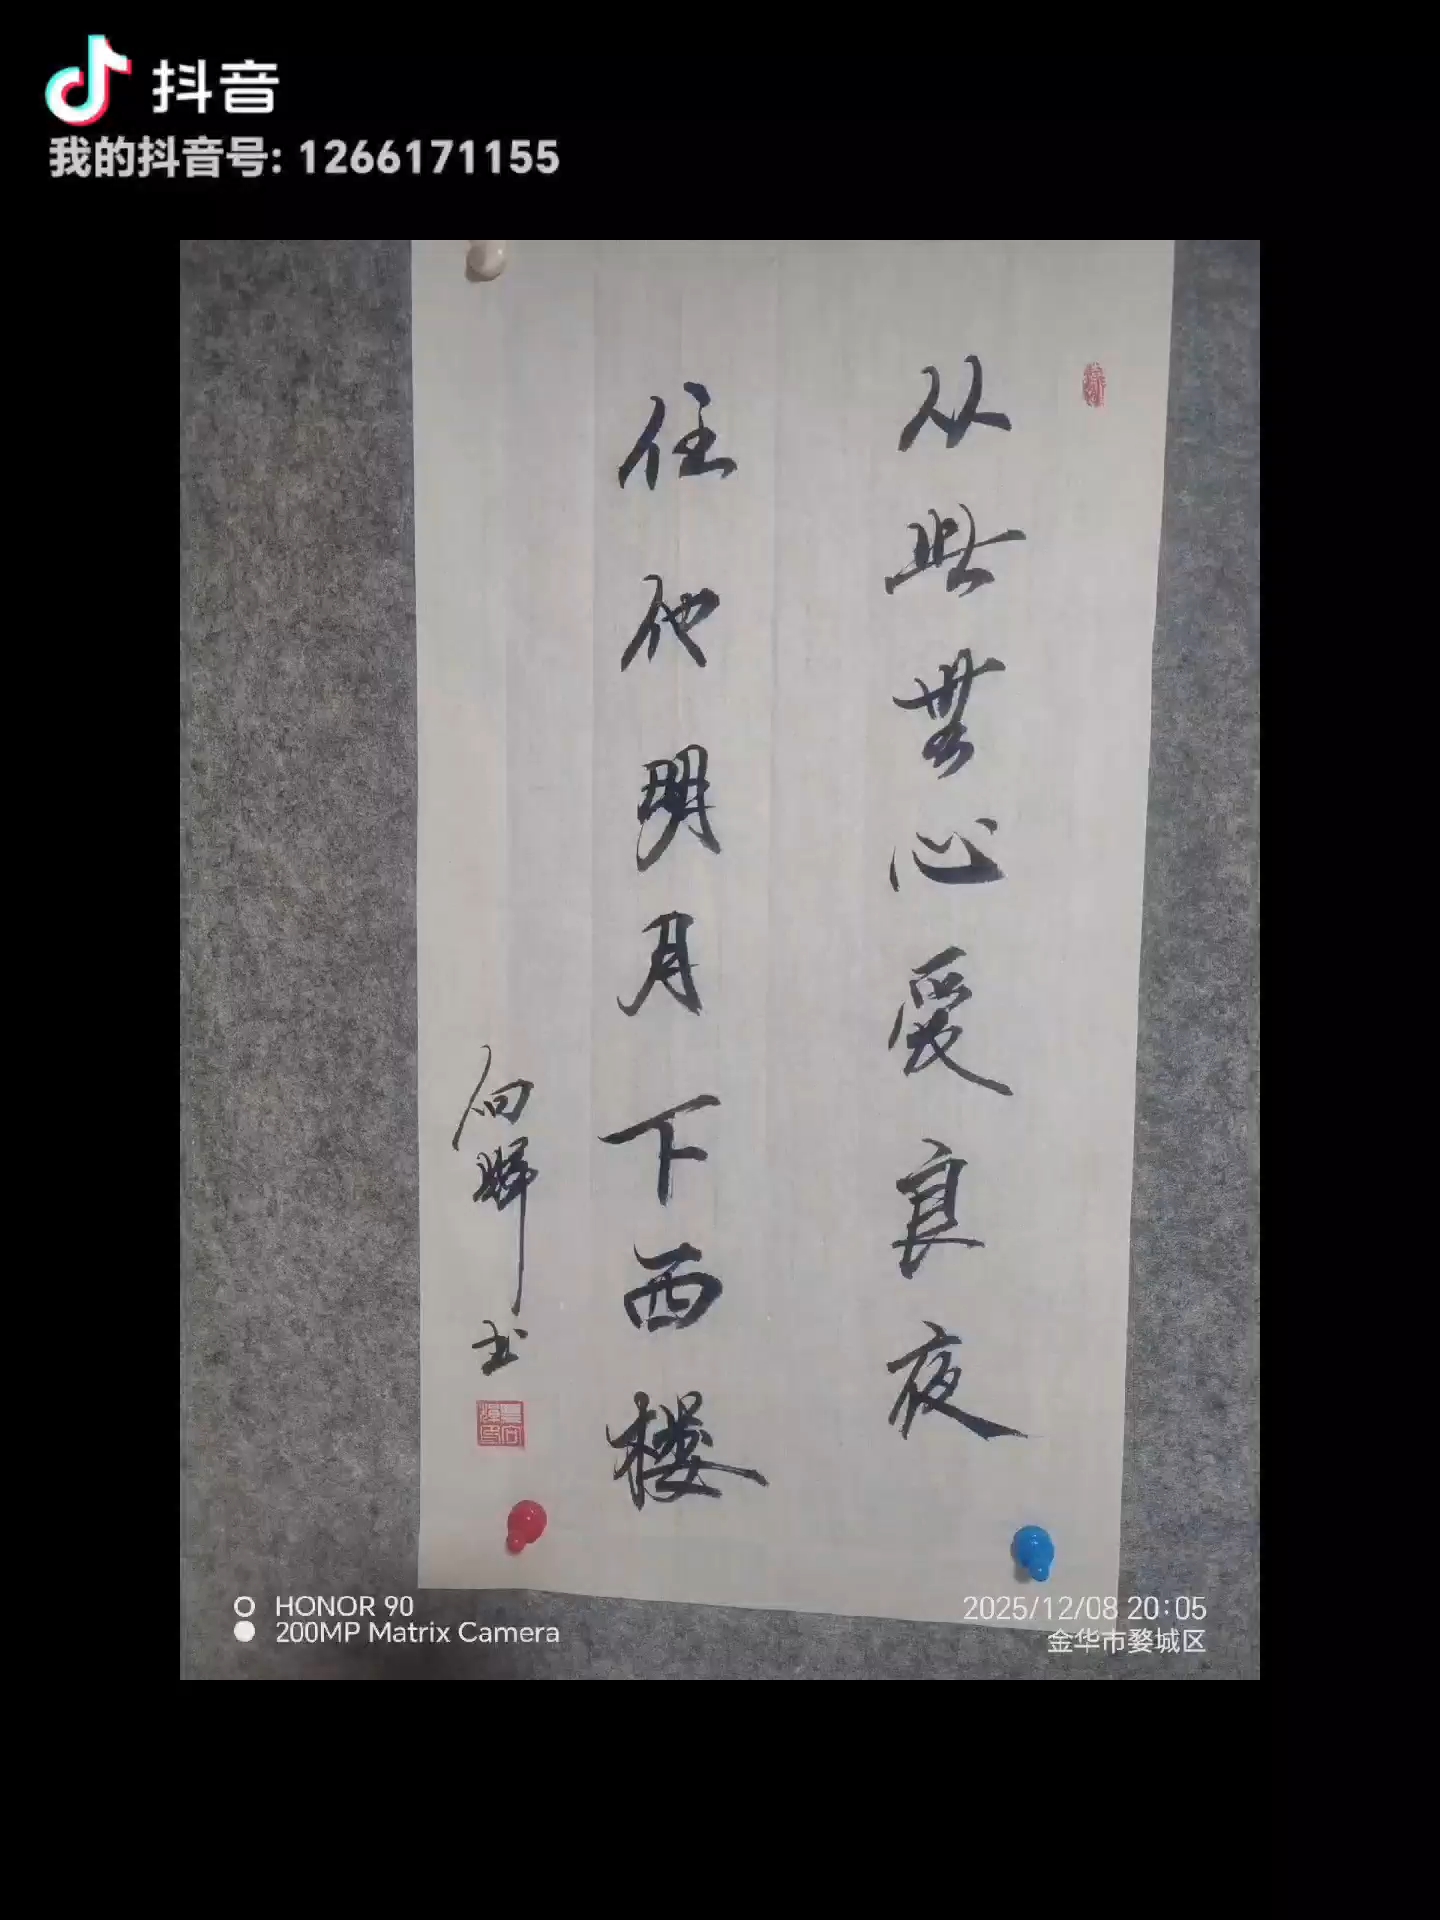 抖音
我的抖音号: 1266171155
从此無心爱良夜
住他明月下西楼
向辉书
HONOR 90
200MP Matrix Camera
2025/12/08 20:05
金华市婺城区